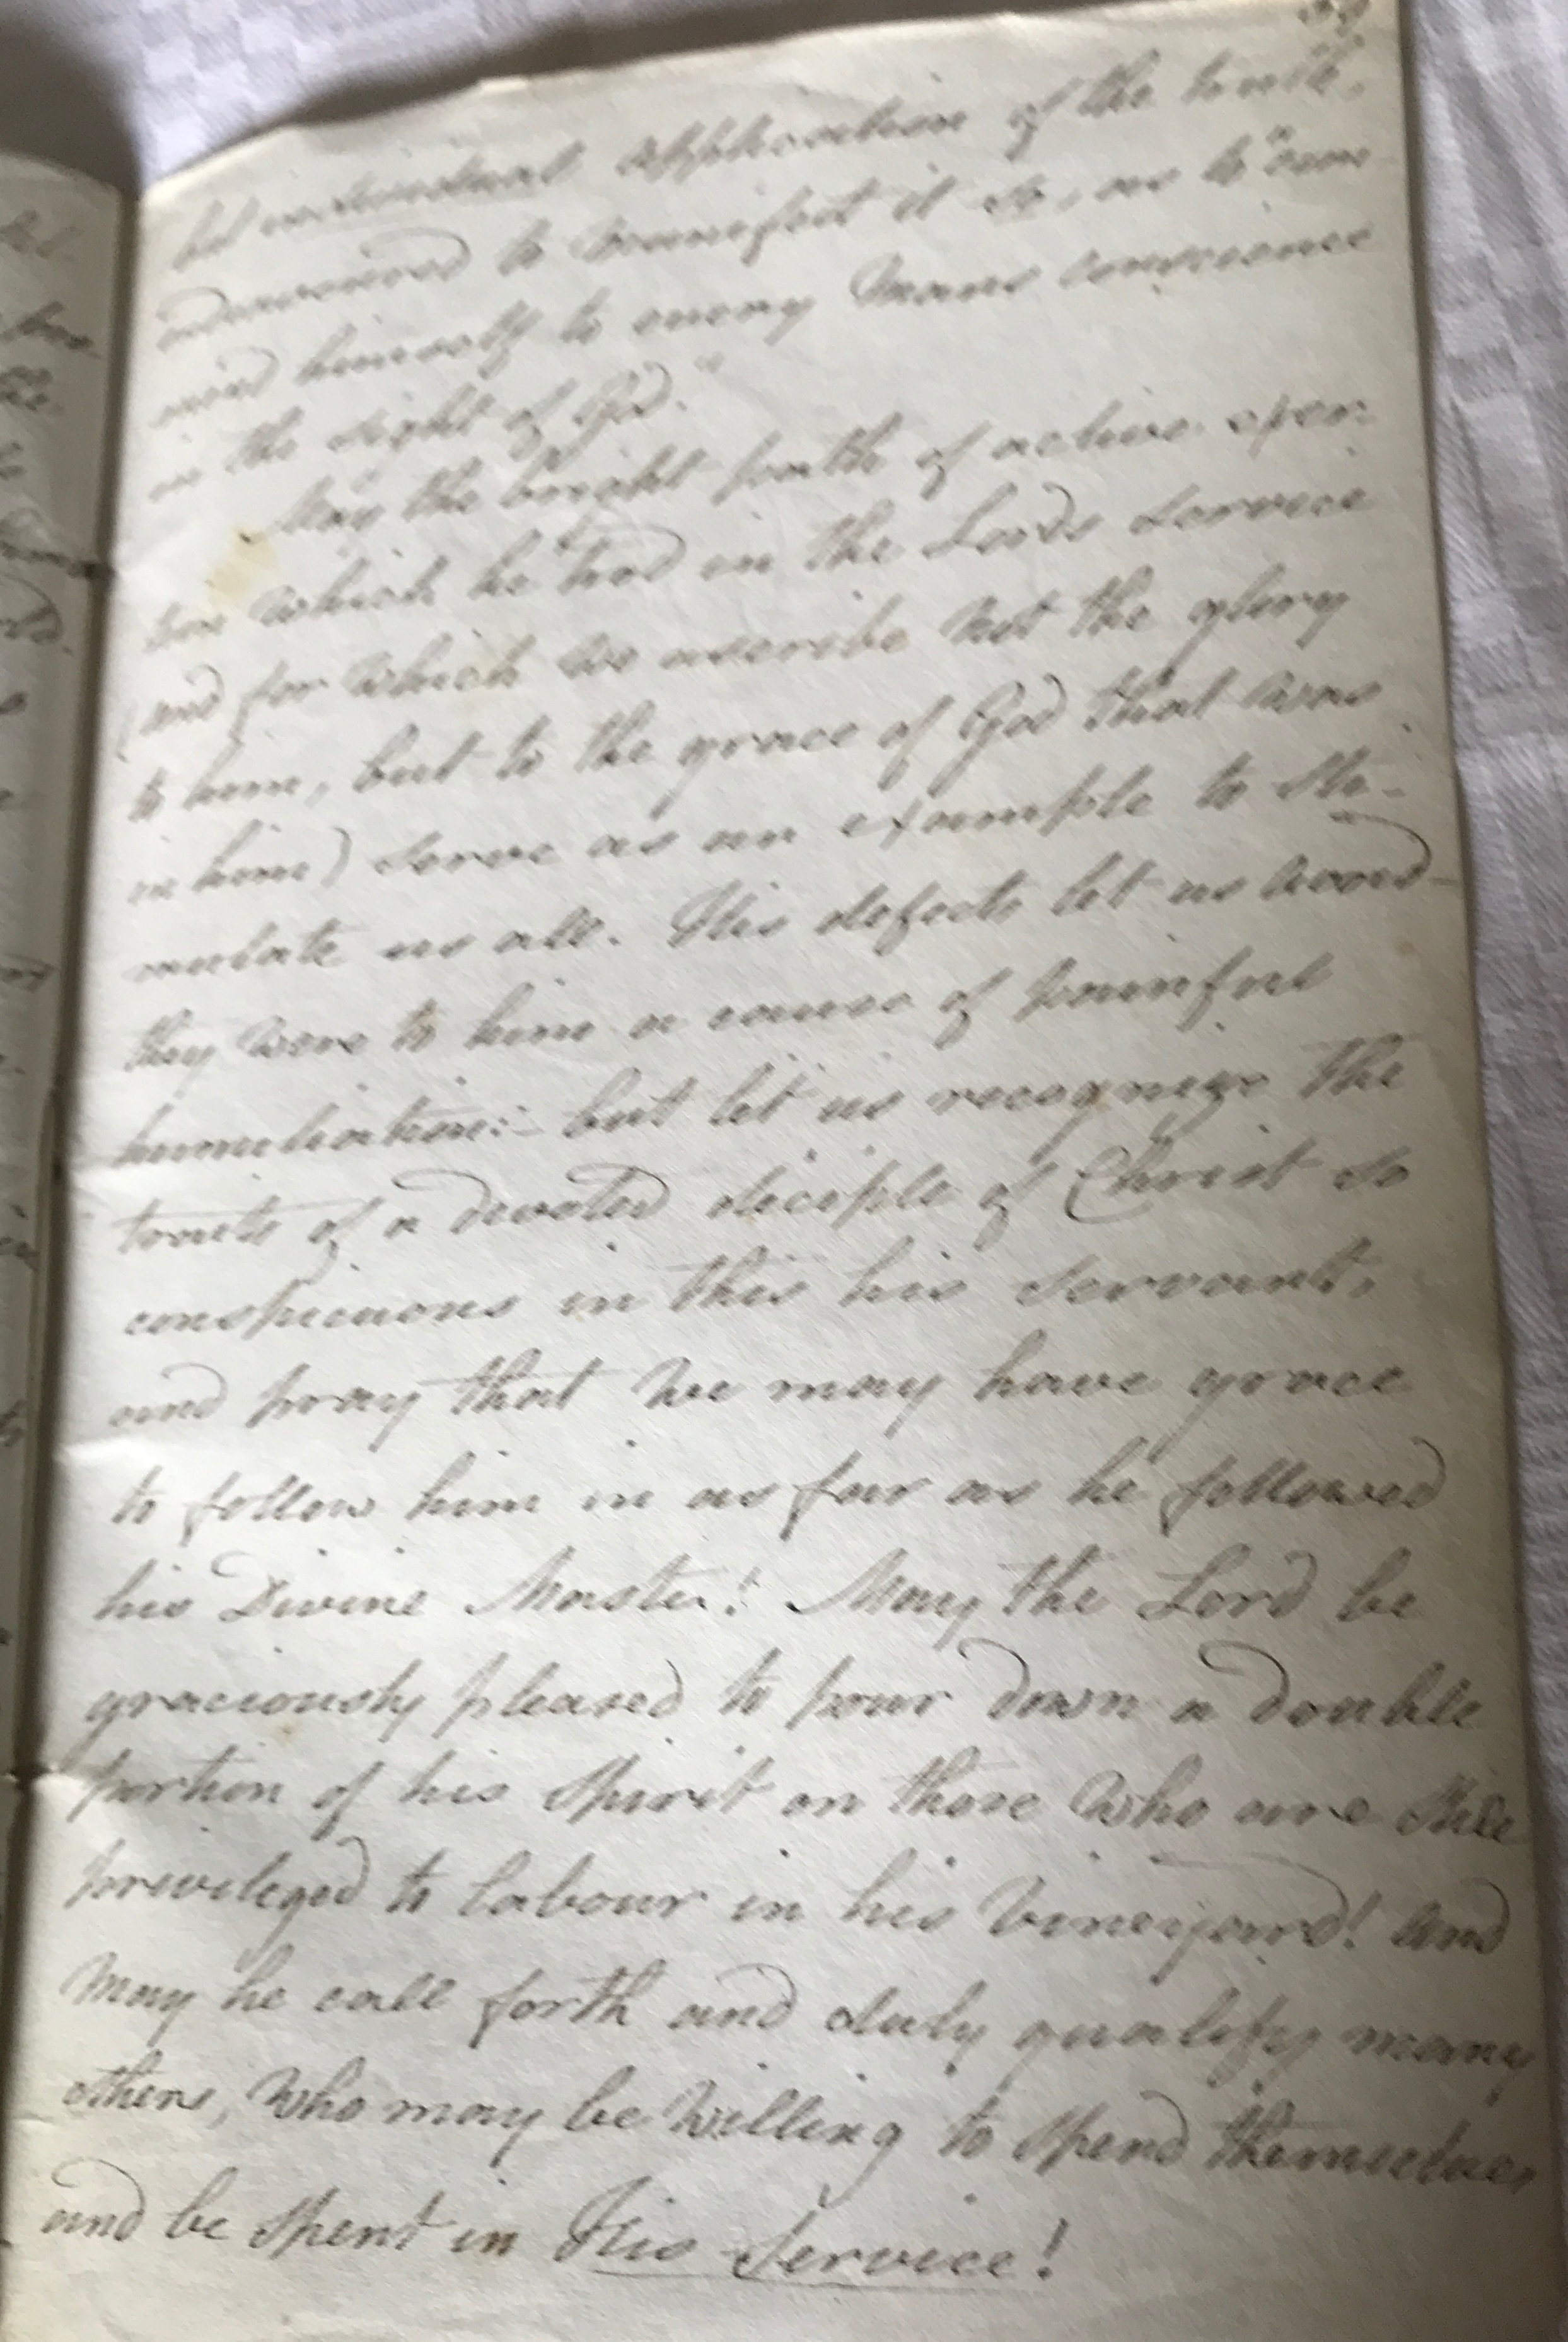 ful individual application of the truth,
endeavoured to manifest it so, as to "com-
mend himself to every Mans conscience
in the sight of God."
May the bright path of active exer-
tion which he trod in the Lords service
(and for which we ascribe not the glory
to him, but to the grace of God that was
in him) serve as an example to sti-
mulate us all. His defects let us avoid–
they were to him a cause of painful
humiliation:– but let us recognize the
traits of a devoted disciple of Christ so
conspicuous in this his servant,
and pray that we may have grace
to follow him in as far as he followed
his Divine Master! May the Lord be
graciously pleased to pour down a double
portion of his Spirit on those who are still
privileged to labour in his Vineyard! and
may he call forth and duly qualify many
others, who may be willing to spend themselves
and be spent in His Service!